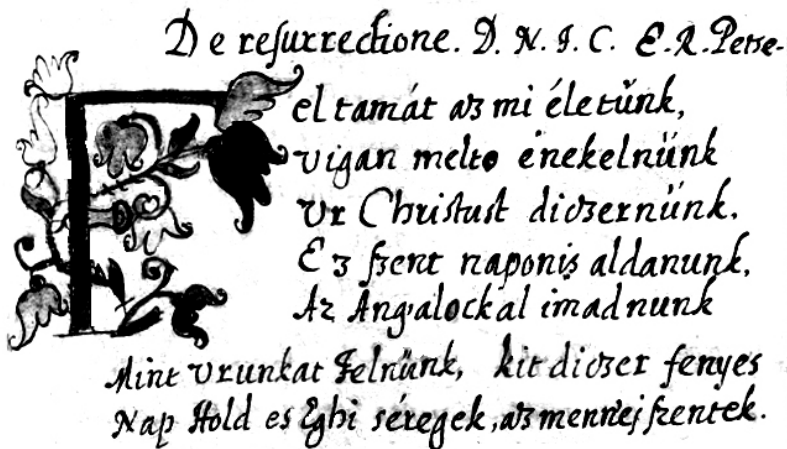 De resurrectione. D. N. I. C. E. R. Petse-
Fel tamát az mi életünk,
vigan melto énekelnünk
Vr Christust diczernünk.
Ez szent naponis aldanunk,
Az Angalockal imadnunk
Mint vrunkat Felnünk, kit diczer fenyes
Nap Hold es Eghi séregek, az mennei szentek.